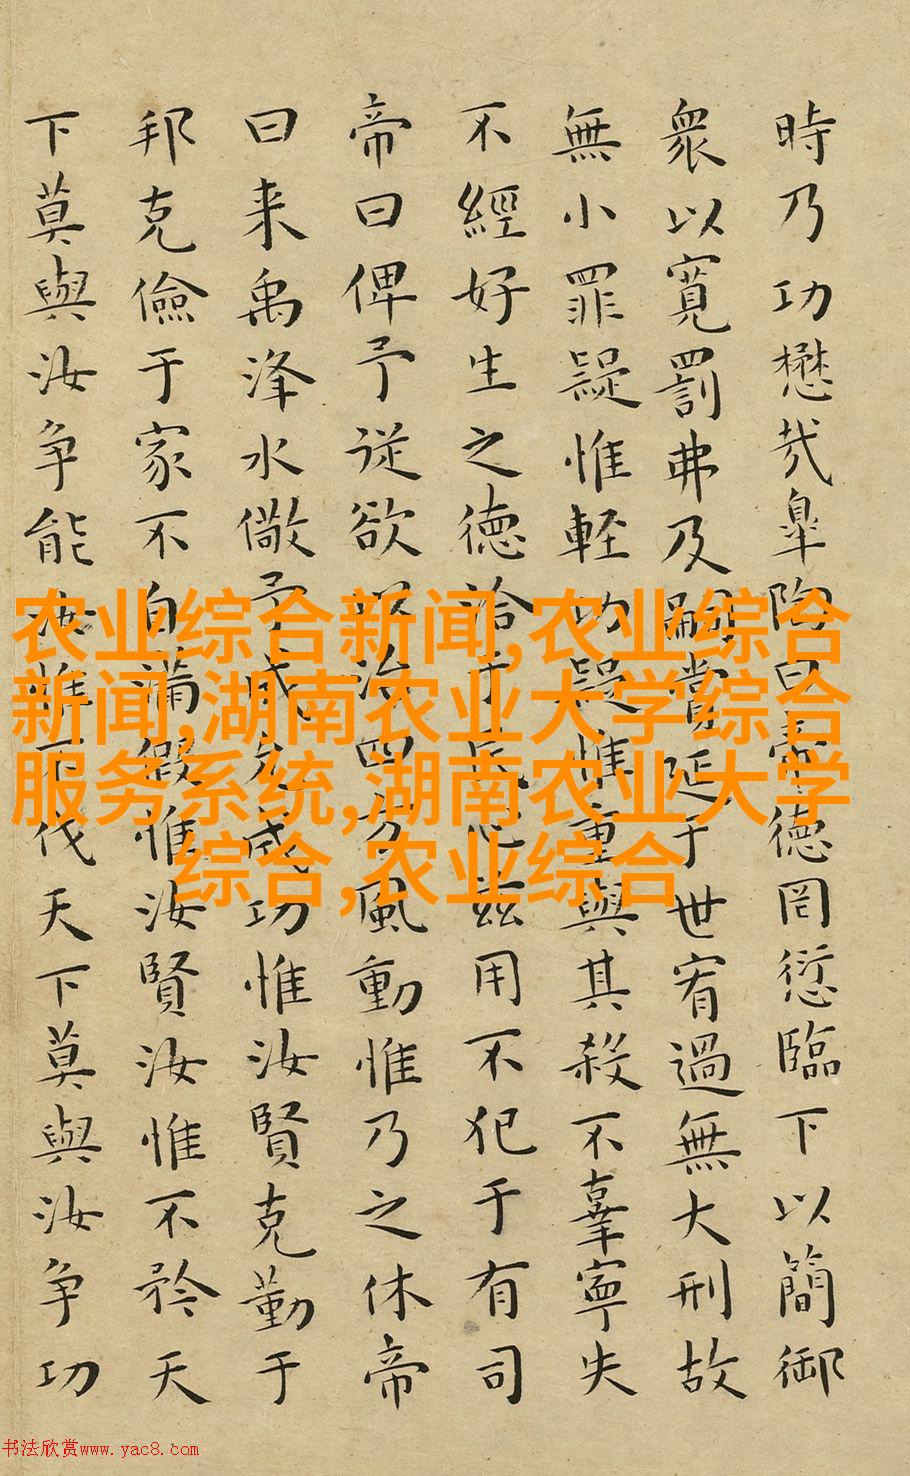 時乃功懋哉皐陶曰帝德罔愆臨下以簡御
衆以寛罰弗及嗣賞延于世宥過無大刑故
無小罪疑惟軽功疑惟重與其殺不辜寧失
不經好生之德洽于民心兹用不犯于有司
帝曰俾予從欲以治四方風動惟乃之休帝
曰来禹洚水儆予成允成功惟汝賢克勤于
邦克儉于家不自滿假惟汝賢汝惟不矜天
下莫與汝争能汝惟不伐天下莫與汝争功
农业综合新闻,农业综合
新闻,湖南农业大学综合
服务系统,湖南农业大学
综合,农业综合
书法欣赏www.yac8.com